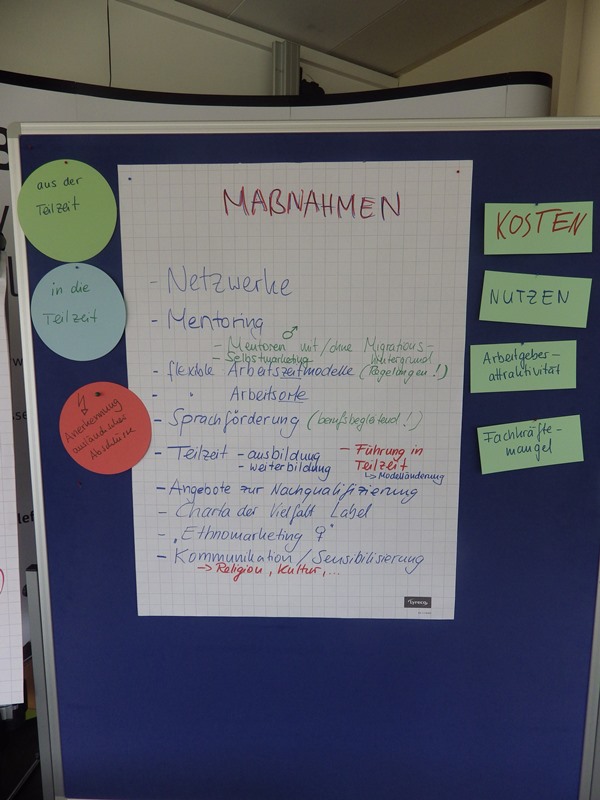 aus der
Teilzeit
in die
Teilzeit
Anerkennung
ausländischer
Abschlüsse
MAßNAHMEN
- Netzwerke
- Mentoring
- Mentoren ♂ mit/ohne Migrations-
hintergrund
- Selbstmarketing
- flexible Arbeitszeitmodelle (Regelungen!)
- " Arbeitsorte
- Sprachförderung (berufsbegleitend!)
- Teilzeit - ausbildung
- weiterbildung
- Führung in
Teilzeit
↳ Modelländerung
- Angebote zur Nachqualifizierung
- Charta der Vielfalt Label
- "Ethnomarketing ♀"
- Kommunikation / Sensibilisierung
-> Religion, Kultur, ...
KOSTEN
NUTZEN
Arbeitgeber-
attraktivität
Fachkräfte-
mangel